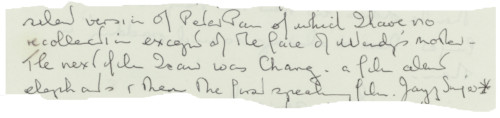 silent version of Peter Pan of which I have no
recollection except of the face of Wendy's mother.
The next film I saw was Chang. a film about
elephants & then the first speaking film. Jazz Singer*